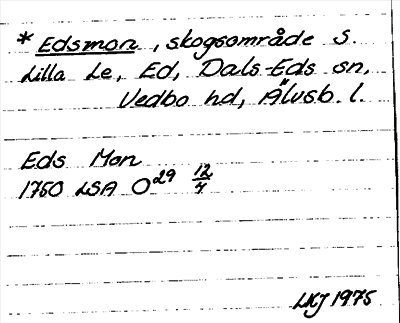 * Edsmon, skogsområde S.
Lilla Le, Ed, Dals-Eds sn,
Vedbo hd, Älvsb. l.
Eds Mon
1750 LSA O29 12/7
LKJ 1975